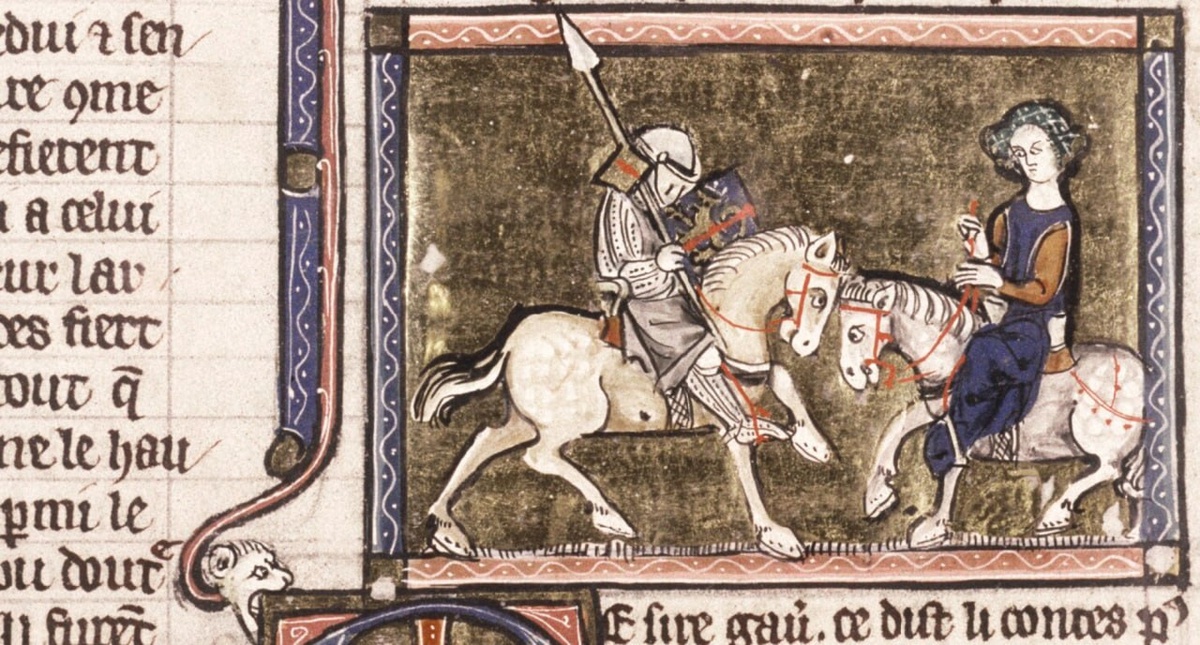 edui ⁊ sen
ure ꝯme
efierent
i a celui
eur lar
des fiert
tout q̃
ne le hau
ꝑmi le
ou dout
li furẽt
E sire gau̾. ce dist li contes p